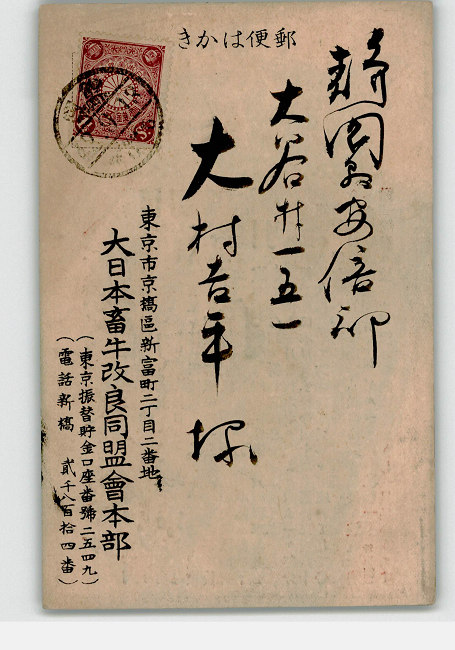 郵便はかき
静岡縣安倍郡
大谷村一五一
大村吉平様
東京市京橋區新富町二丁目二番地
大日本畜牛改良同盟會本部
(東京振替貯金口座番號二五四九)
(電話新橋 貳千八百拾四番)